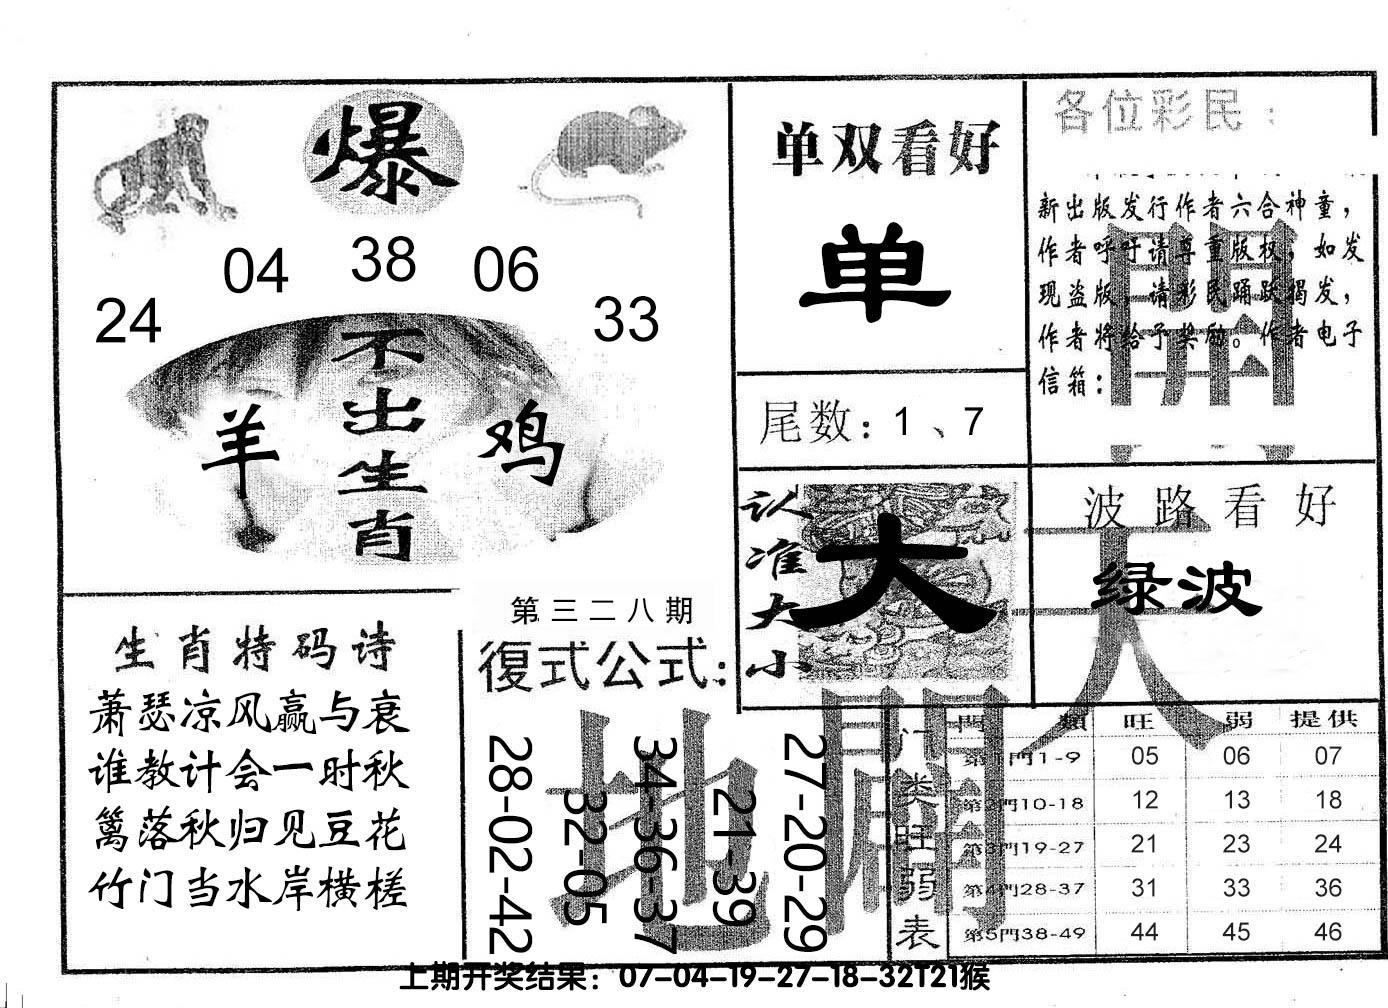 爆
24 04 38 06 33
不出生肖
羊 鸡
单双看好
单
尾数：1、7
各位彩民：
新出版发行作者六合神童，
作者呼吁请尊重版权，如发
现盗版，请彩民踊跃揭发，
作者将给予奖励。作者电子
信箱：
开
认准大小
大
波路看好
绿波
天
生肖特码诗
萧瑟凉风赢与衰
谁教计会一时秋
篱落秋归见豆花
竹门当水岸横槎
第三二八期
復式公式：
28-02-42
32-05
34-36-37
21-39
27-20-29
地
门类旺弱表
門類 旺 弱 提供
第1門1-9 05 06 07
第2門10-18 12 13 18
第3門19-27 21 23 24
第4門28-37 31 33 36
第5門38-49 44 45 46
上期开奖结果：07-04-19-27-18-32T21猴